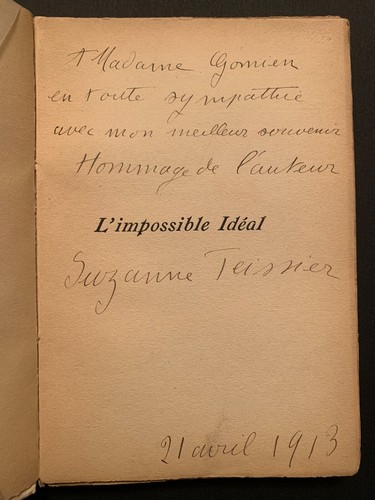 A Madame Gomien
en toute sympathie
avec mon meilleur souvenir
Hommage de l'auteur
L'impossible Idéal
Suzanne Teissier
21 avril 1913